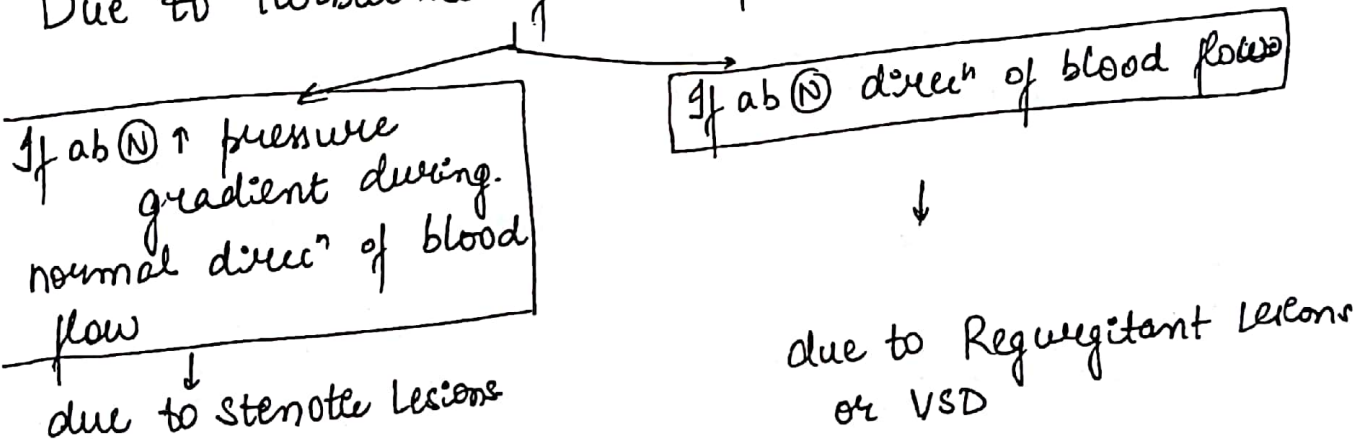 Due to
If ab Ⓝ ↑ pressure
gradient during.
normal direcⁿ of blood
flow
↓
due to stenotic Lesions
If ab Ⓝ direcⁿ of blood flow
↓
due to Regurgitant Lesions
or VSD